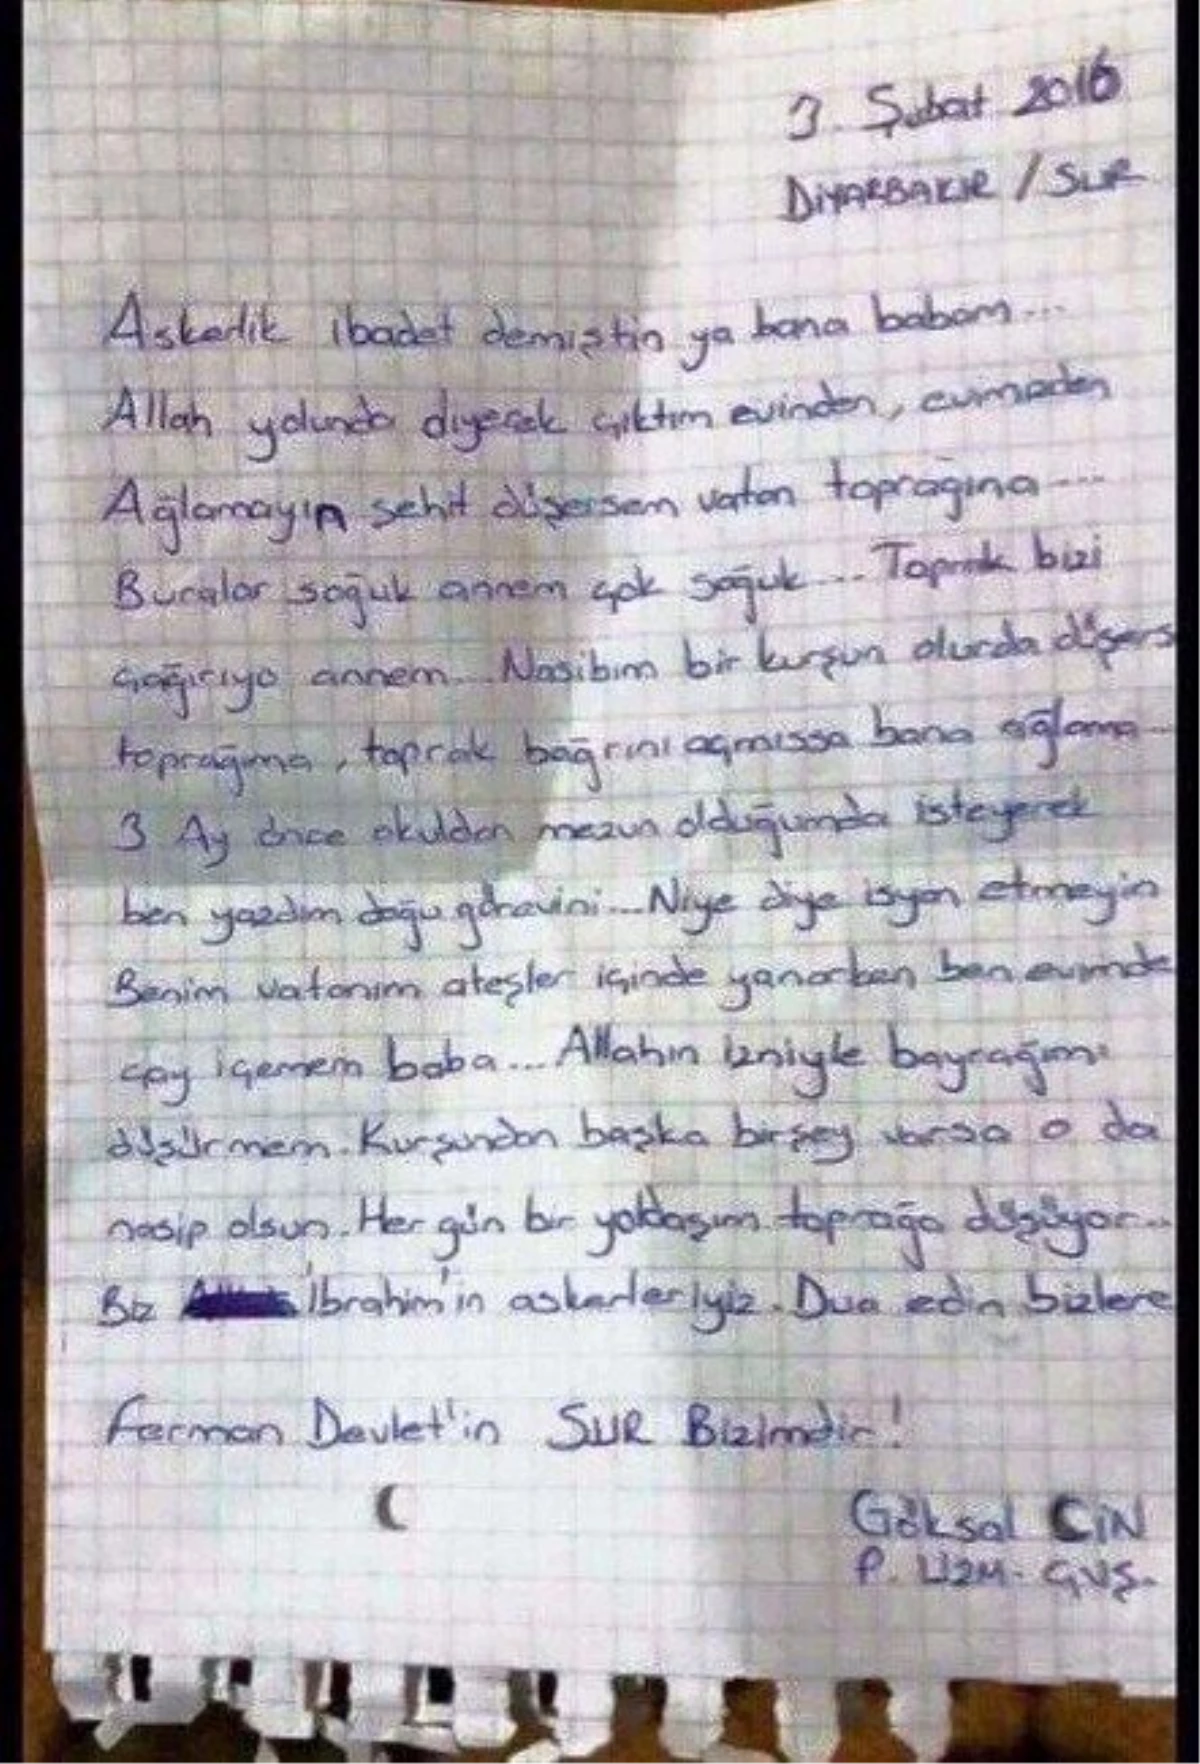 3. Şubat 2016
DİYARBAKIR / SUR
Askerlik ibadet demiştin ya bana babam...
Allah yolunda diyerek çıktım evinden, evimden
Ağlamayın şehit düşersem vatan toprağına....
Buralar soğuk annem çok soğuk... Toprak bizi
çağırıyo annem... Nasibim bir kurşun olurda düşers
toprağıma, toprak bağrını açmıssa bana ağlama...
3 Ay önce okuldan mezun olduğumda isteyerek
ben yazdım doğu görevini... Niye diye isyan etmeyin
Benim vatanım ateşler içinde yanarken ben evimde
çay içemem baba... Allahın izniyle bayrağımı
düşürmem. Kurşundan başka birşey varsa o da
nasip olsun. Her gün bir yoldaşım toprağa düşüyor...
Biz İbrahim'in askerleriyiz. Dua edin bizlere
Ferman Devlet'in SUR Bizimdir!
Göksal ÇİN
P. UZM. ÇVŞ.